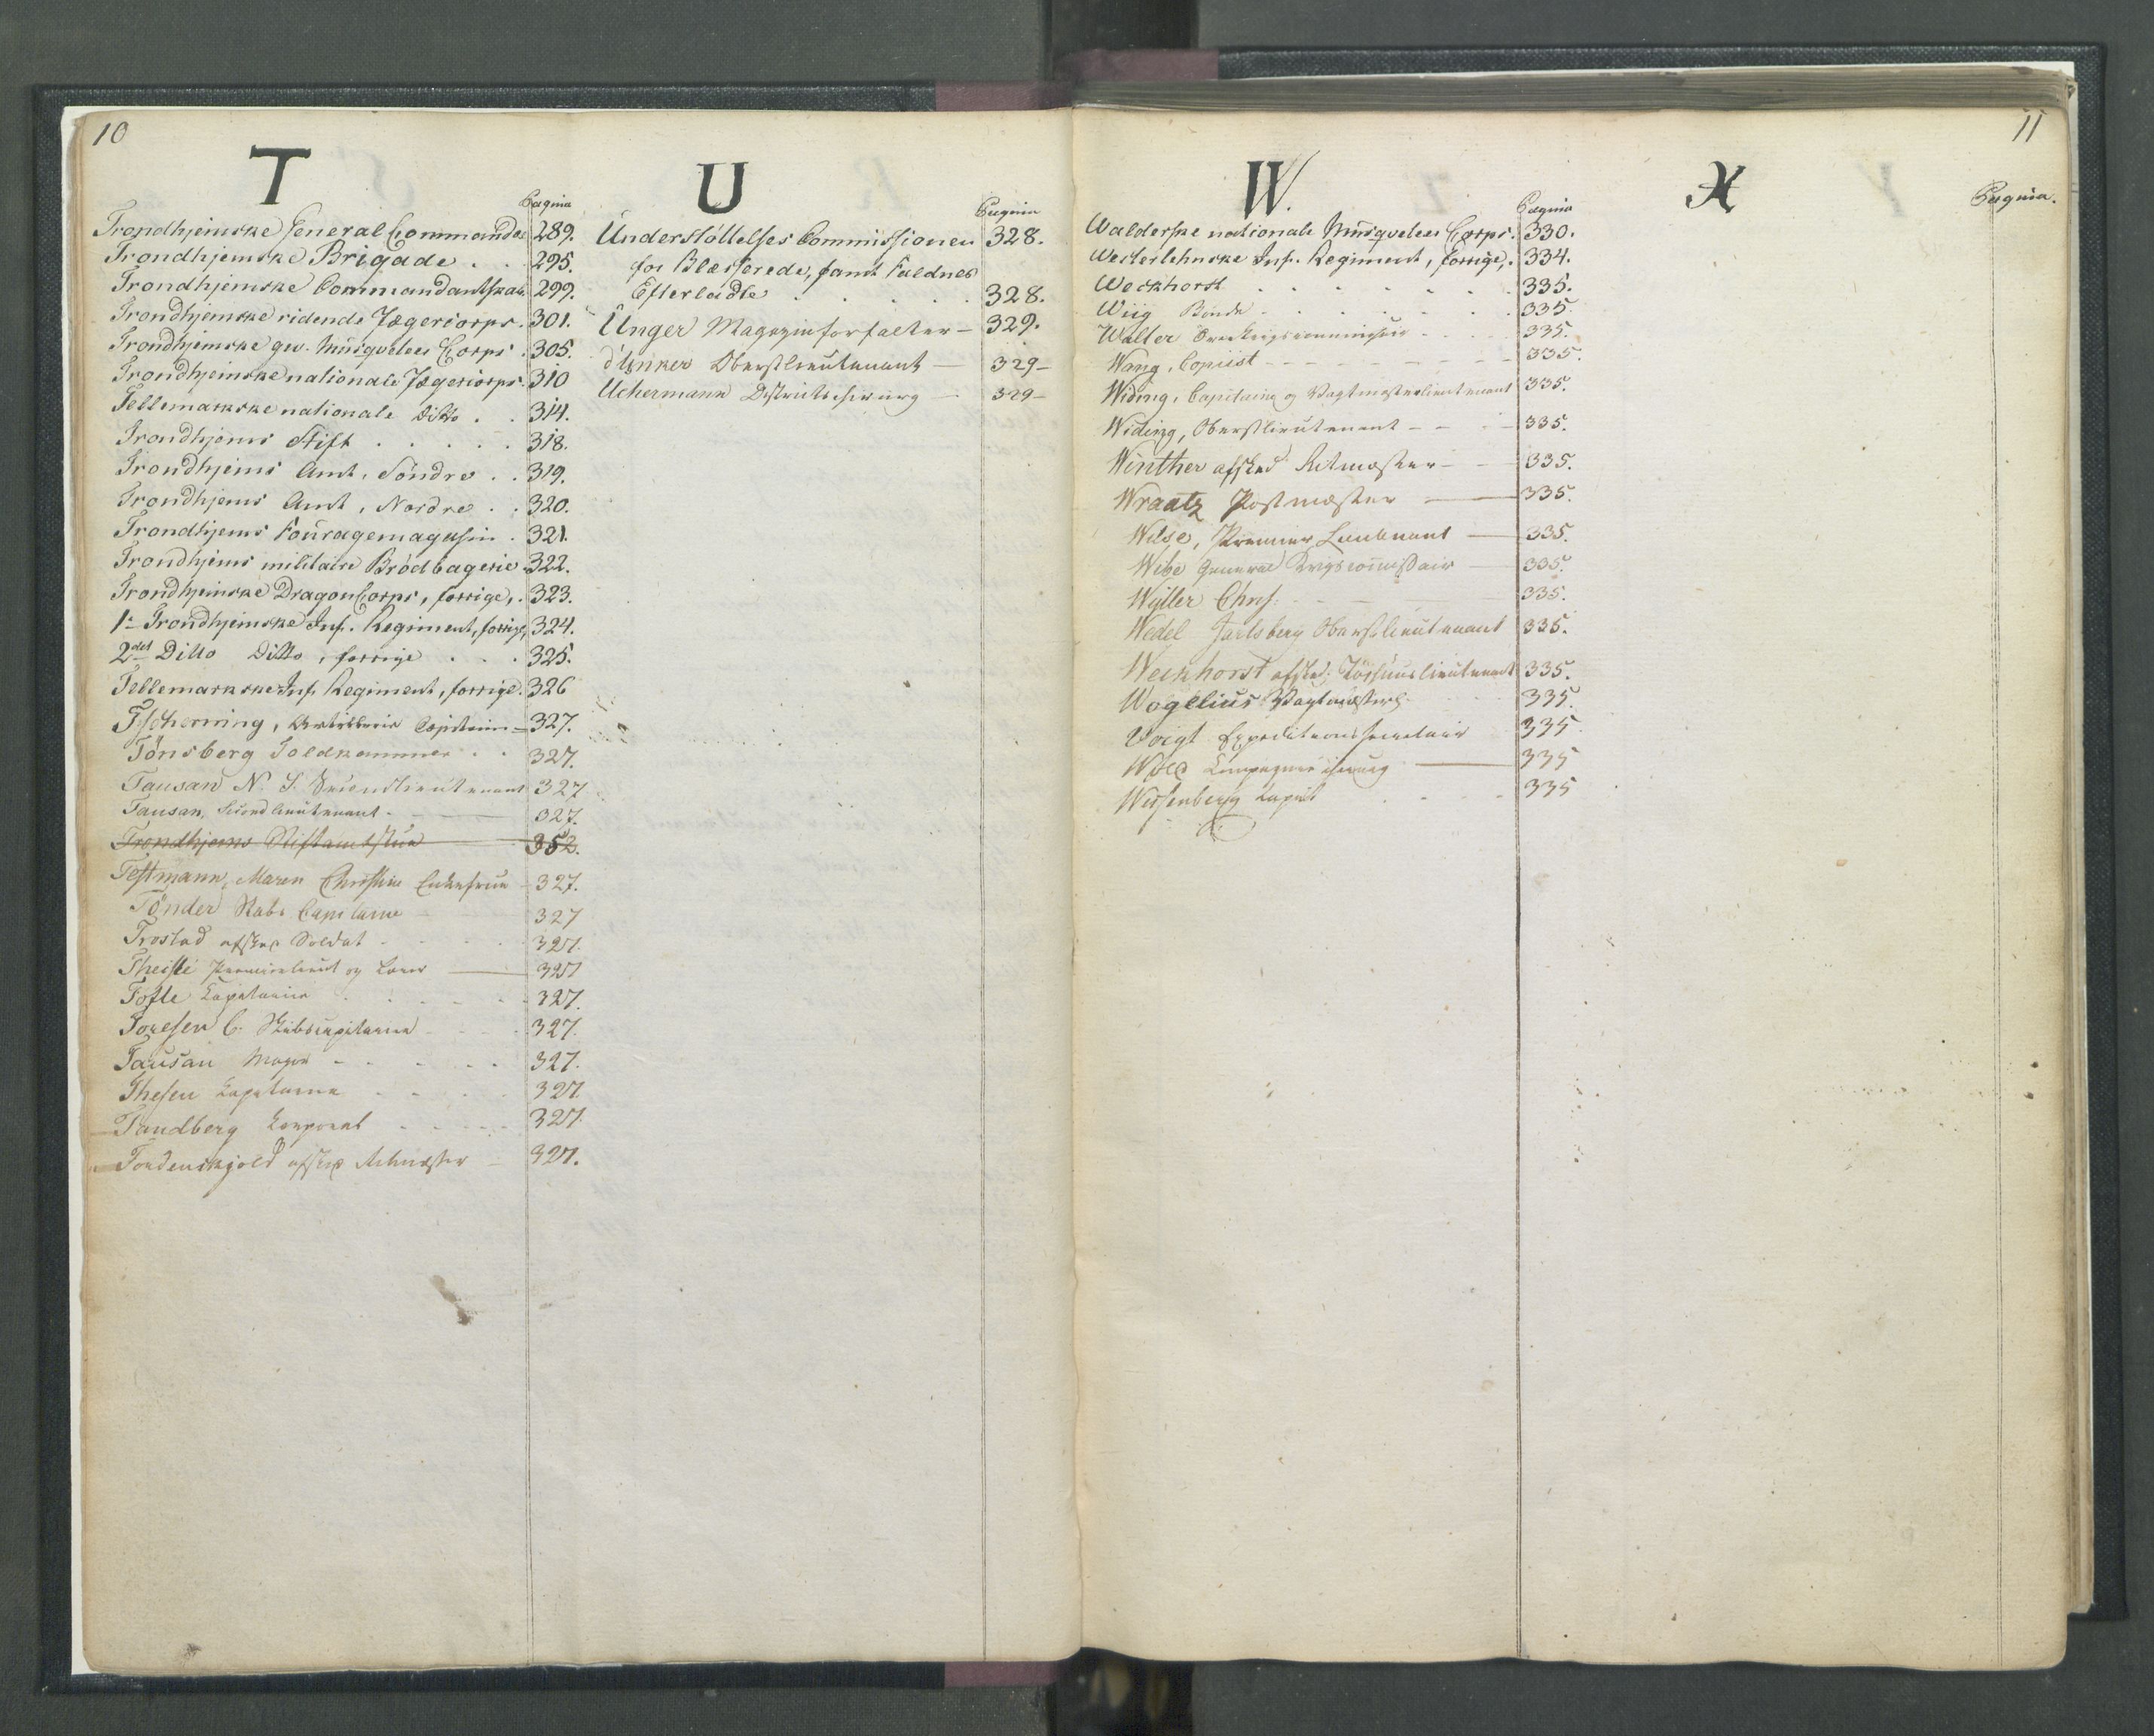 10
T
Pagina
Trondhjemske General Commandoe 289.
Trondhjemske Brigade . . 295.
Trondhjemske Commandantskab 299.
Trondhjemske ridende Jægercorps . 301.
Trondhjemske gev. Musqveteer Corps . 305.
Trondhjemske nationale Jægercorps . 310
Tellemarkske nationale Ditto . . 314.
Trondhjems Stift . . . . . 318.
Trondhjems Amt, Söndre . . 319.
Trondhjems Amt, Nordre . . 320.
Trondhjems Fouragemagasin . 321.
Trondhjems militaire Brödbagerie . 322.
Trondhjemske Dragon Corps, forrige, . 323.
1e Trondhjemske Inf. Regiment, forrige, 324.
2det Ditto Ditto, forrige . . . 325.
Tellemarkske Inf. Regiment, forrige . 326
Tscherning, Artillerie Capitain - 327.
Tönsberg Toldkammer . . 327.
Tausan N. S. Secondlieutenant 327
Tausan, Secondlieutenant - 327.
Trondhjems Stiftamtstue 352.
Testmann, Maren Christine Enkefrue - 327.
Tönder Stabs Capitaine 327
Trostad afsked Soldat - 327.
Theiste Premierlieut og 327
Tofte Capitaine 327.
Toresen C. Stabscapitaine 327.
Tausan Major - 327.
Thesen Capitaine 327.
Tandberg Korporal 327.
Tordenskjold afsked Ritmester - 327.
U
Pagina
Understöttelses Commissionen 328.
for Blesserede, samt Faldnes
Efterladte . . . . . 328.
Unger Magazinforvalter - 329.
d'Unker Oberstlieutenant - 329 -
Uchermann Districtschirurg - 329 -
11
W.
Pagina
Walderske nationale Musqveteer Corps . 330.
Westerlehnske Inf. Regiment, forrige, . 334.
Weckhorst . . . . . 335.
Wiig Bonde . . . . . 335.
Waller Overkrigscommissair . . . 335.
Wang, Copiist - - - 335.
Widing, Capitaine og Vagtmesterlieutenant 335.
Widing, Oberstlieutenant - - 335.
Winther afsked Ritmester - - 335.
Wraatz Postmester - 335.
Wilse, Premier Lieutnant - 335.
Wibe General Krigscommissair - 335.
Wyller Chrs. - - 335.
Wedel Jarlsberg Oberstlieutenant 335.
Weckhorst afsked. 335.
Wogelius Vagtmester 335.
Voigt Expeditionssecretair 335.
Compagniechirurg - 335
335
X
Pagina.